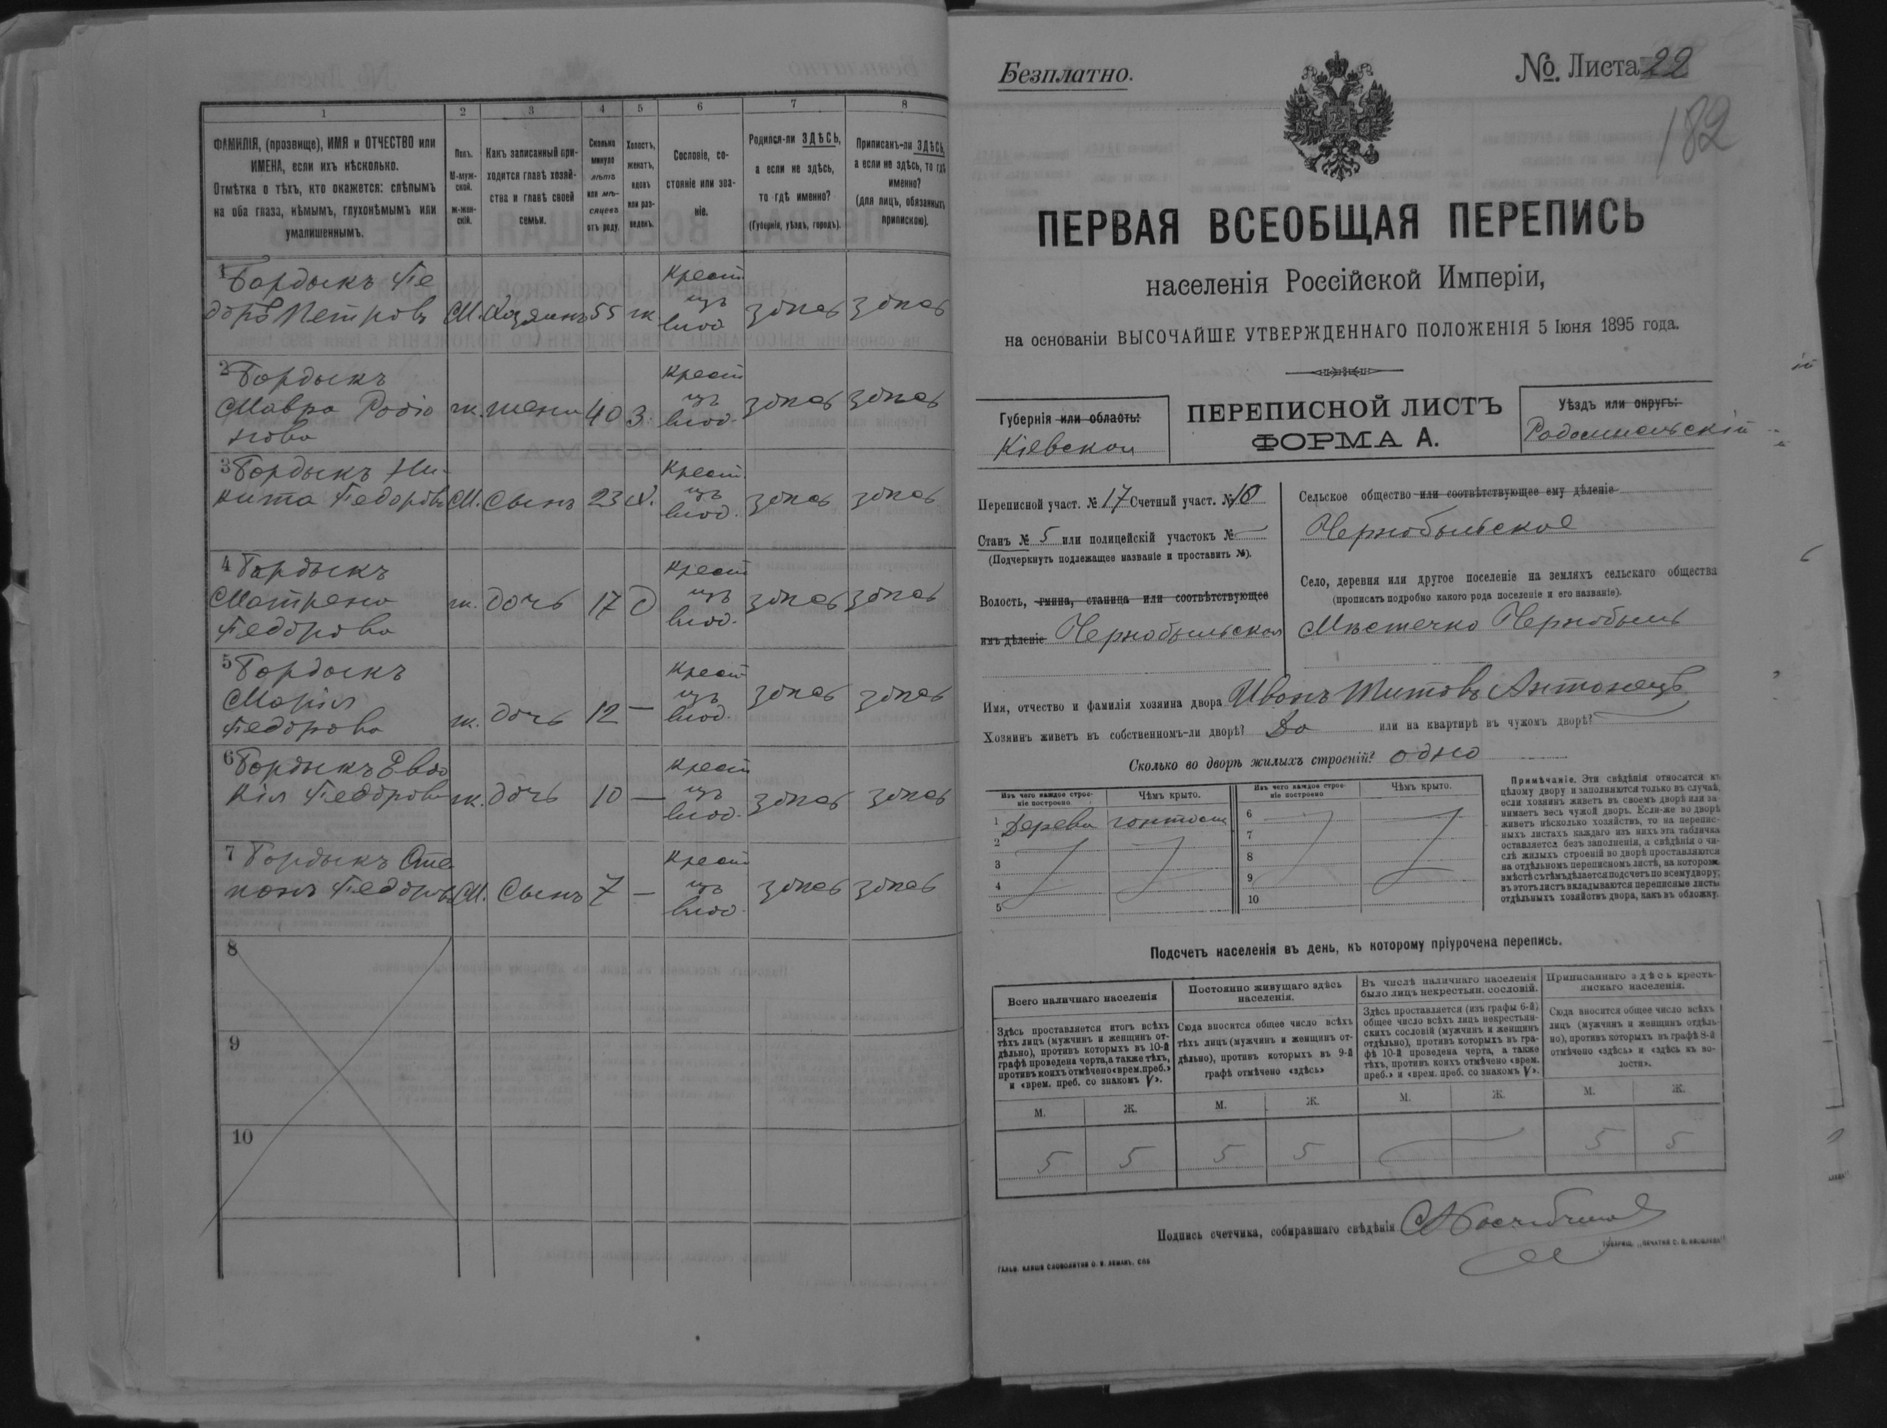 1 2 3 4 5 6 7 8
ФАМИЛІЯ, (прозвище), ИМЯ и ОТЧЕСТВО или
ИМЕНА, если ихъ нѣсколько.
Отмѣтка о тѣхъ, кто окажется: слѣпымъ
на оба глаза, нѣмымъ, глухонѣмымъ или
умалишеннымъ.
Полъ.
М-муж-
ской.
ж-жен-
скій.
Какъ записанный при-
ходится главѣ хозяй-
ства и главѣ своей
семьи.
Сколько
минуло
лѣтъ
или мѣ-
сяцевъ
отъ роду.
Холостъ,
женатъ,
вдовъ
или раз-
веденъ.
Сословіе, со-
стояніе или зва-
ніе.
Родился-ли ЗДѢСЬ,
а если не здѣсь,
то гдѣ именно?
(Губернія, уѣздъ, городъ).
Приписанъ-ли ЗДѢСЬ,
а если не здѣсь, то гдѣ
именно?
(для лицъ, обязанныхъ
припискою).
1 Бордыкъ Фе
доръ Петровъ М. Хозяинъ 55 ж Крест изъ влад. здѣсь здѣсь
2 Бордыкъ
Мавра Родіо
нова ж. жена 40 З. Крест изъ влад. здѣсь здѣсь
3 Бордыкъ Ни-
кита Федоровъ М. Сынъ 23 Х. Крест изъ влад. здѣсь здѣсь
4 Бордыкъ
Матрена
Федорова ж. дочь 17 Д Крест изъ влад. здѣсь здѣсь
5 Бордыкъ
Марія
Федорова ж. дочь 12 — Крест изъ влад. здѣсь здѣсь
6 Бордыкъ Евдо
кія Федорова ж. дочь 10 — Крест изъ влад. здѣсь здѣсь
7 Бордыкъ Сте
панъ Федоровъ М. Сынъ 7 — Крест изъ влад. здѣсь здѣсь
8
9
10
Безплатно.
№ Листа 22
182
ПЕРВАЯ ВСЕОБЩАЯ ПЕРЕПИСЬ
населенія Россійской Имперіи,
на основаніи ВЫСОЧАЙШЕ УТВЕРЖДЕННАГО ПОЛОЖЕНІЯ 5 Іюня 1895 года.
Губернія или область:
Кіевской
ПЕРЕПИСНОЙ ЛИСТЪ
ФОРМА А.
Уѣздъ или округъ:
Радомысльскій
Переписной участ. № 17 Счетный участ. № 10
Станъ № 5 или полицейскій участокъ № —
(Подчеркнуть подлежащее названіе и проставить №).
Волость, гмина, станица или соотвѣтствующее
имъ дѣленіе Чернобыльская
Сельское общество или соотвѣтствующее ему дѣленіе
Чернобыльское
Село, деревня или другое поселеніе на земляхъ сельскаго общества
(прописать подробно какого рода поселеніе и его названіе).
Мѣстечко Чернобыль
Имя, отчество и фамилія хозяина двора Иванъ Титовъ Антонецъ
Хозяинъ живетъ въ собственномъ-ли дворѣ? Да или на квартирѣ въ чужомъ дворѣ? —
Сколько во дворѣ жилыхъ строеній? одно
Изъ чего каждое строе-
ніе построено
Чѣмъ крыто.
Изъ чего каждое строе-
ніе построено
Чѣмъ крыто.
1 Дерева гонтом 6
2 7
3 8
4 9
5 10
Примѣчаніе. Эти свѣдѣнія относятся къ
цѣлому двору и заполняются только въ случаѣ,
если хозяинъ живетъ въ своемъ дворѣ или за-
нимаетъ весь чужой дворъ. Если-же во дворѣ
живетъ нѣсколько хозяйствъ, то на перепис-
ныхъ листахъ каждаго изъ нихъ эта табличка
оставляется безъ заполненія, а свѣдѣнія о чи-
слѣ жилыхъ строеній во дворѣ проставляются
на отдѣльномъ переписномъ листѣ, на которомъ
вмѣстѣ съ тѣмъ дѣлается подсчетъ по всему двору;
въ этотъ листъ вкладываются переписные листы
отдѣльныхъ хозяйствъ двора, какъ въ обложку.
Подсчетъ населенія въ день, къ которому пріурочена перепись.
Всего наличнаго населенія
Здѣсь проставляется итогъ всѣхъ
тѣхъ лицъ (мужчинъ и женщинъ от-
дѣльно), противъ которыхъ въ 10-й
графѣ проведена черта, а также тѣхъ,
противъ коихъ отмѣчено «врем. преб.»
и «врем. преб. со знакомъ V».
Постоянно живущаго здѣсь
населенія.
Сюда вносится общее число всѣхъ
тѣхъ лицъ (мужчинъ и женщинъ от-
дѣльно), противъ которыхъ въ 9-й
графѣ отмѣчено «здѣсь»
Въ числѣ наличнаго населенія
было лицъ некрестьян. сословій.
Здѣсь проставляется (изъ графы 6-й)
общее число всѣхъ лицъ некрестьян-
скихъ сословій (мужчинъ и женщинъ
отдѣльно), противъ которыхъ въ гра-
фѣ 10-й проведена черта, а также
тѣхъ, противъ коихъ отмѣчено «врем.
преб.» и «врем. преб. со знакомъ V».
Приписаннаго здѣсь кресть-
янскаго населенія.
Сюда вносится общее число всѣхъ
лицъ (мужчинъ и женщинъ отдѣль-
но), противъ которыхъ въ графѣ 8-й
отмѣчено «здѣсь» и «здѣсь къ во-
лости».
М. Ж. М. Ж. М. Ж. М. Ж.
5 5 5 5 — 5 5
Подпись счетчика, собиравшаго свѣдѣнія